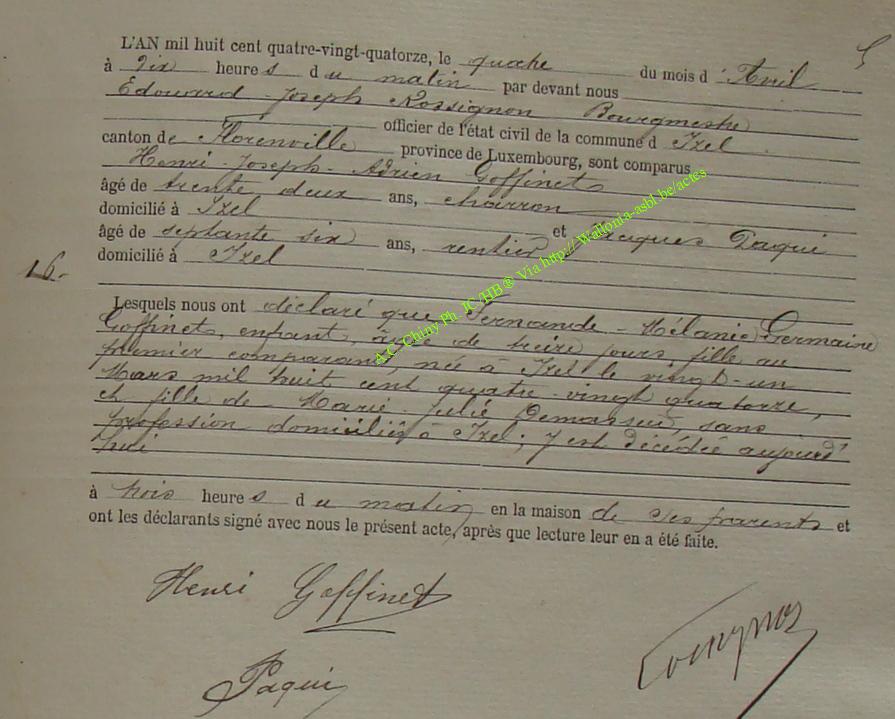 5
L'AN mil huit cent quatre-vingt-quatorze, le quatre du mois d'Avril
à Dix heures du matin par devant nous
Edouard Joseph Rossignon Bourgmestre
officier de l'état civil de la commune d Izel
canton de Florenville province de Luxembourg, sont comparus
Henri-Joseph-Adrien Goffinet
âgé de trente deux ans, charron
domicilié à Izel et Jacques Paqui
âgé de septante six ans, rentier
domicilié à Izel
16.
Lesquels nous ont déclaré que Fernande-Mélanie Germaine
Goffinet, enfant, âgée de treize jours, fille au
premier comparant, née à Izel le vingt-un
Mars mil huit cent quatre-vingt quatorze,
et fille de Marie-Julie Demasseu, sans
profession domiciliés à Izel; y est décédée aujourd'
hui
à trois heures du matin en la maison de ses parents et
ont les déclarants signé avec nous le présent acte, après que lecture leur en a été faite.
Henri Goffinet
Paqui
A.C. Chiny Ph. JC HB® Via http://Wallonia-asbl.be/actes